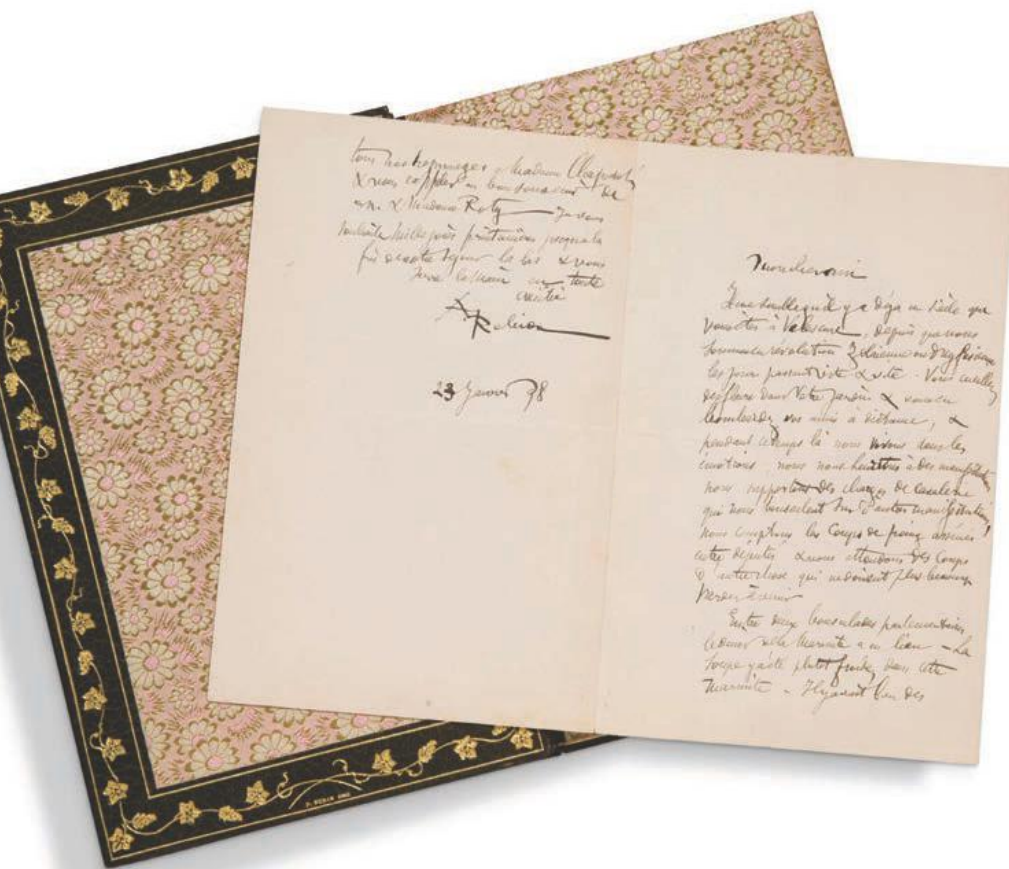 tous nos hommages à Madame
& nous rappeler au bon souvenir de
M. & Madame Roty Je vous
souhaite mille joies printanières jusqu'à la
fin de votre séjour là bas & vous
serre la main en toute
amitié
A Robida
23 Janvier 98
Mon cher ami
Il me semble qu'il y a déjà un siècle que
vous êtes à Valescure, depuis que nous
sommes en révolution
les jours passent vite & vite. Vous cueillez
des fleurs dans votre jardin & vous en
bombardez vos amis à distance, &
pendant ce temps là nous vivons dans les
émotions, nous nous heurtons à des
nous supportons des charges de cavalerie
qui nous bousculent sur d'autres manifestations,
nous comptons les coups de poing assénés
entre députés & nous attendons des coups
d'autre chose qui ne doivent plus beaucoup
tarder à venir
Entre deux bousculades parlementaires
le dîner de la Marmite a eu lieu – La
soupe a été plutôt dans cette
marmite – Il y avait bien des
P. RUBAN